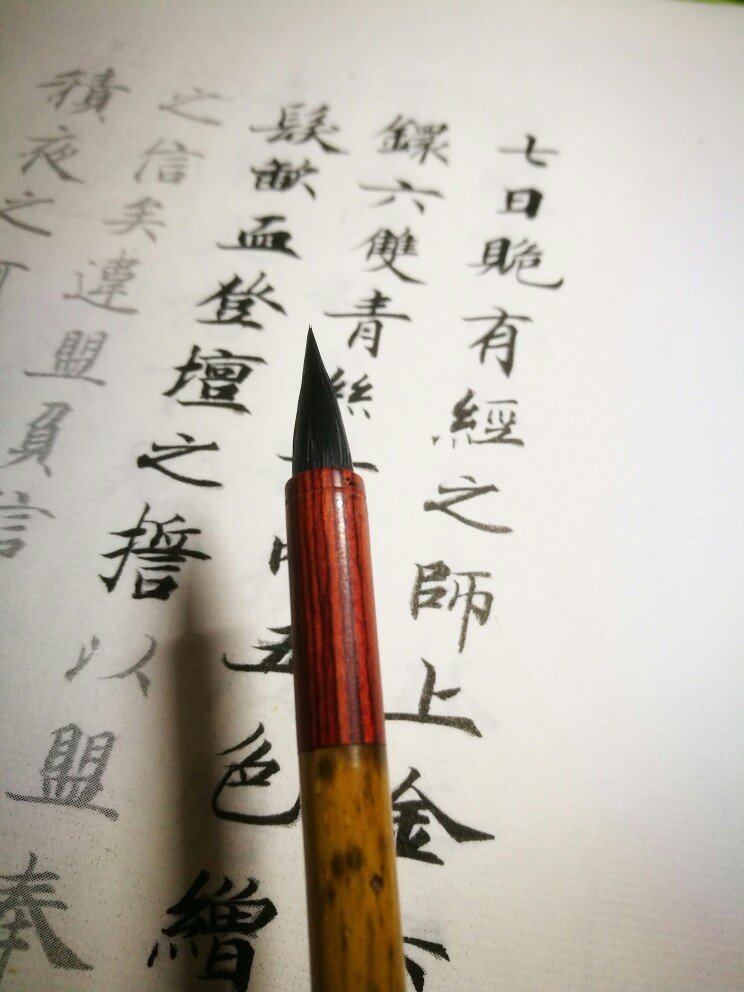 七日有經之師上金
鐶六雙青絲五色繒
髮歃血登壇之誓以盟奉
之信矣違盟負信
積夜之